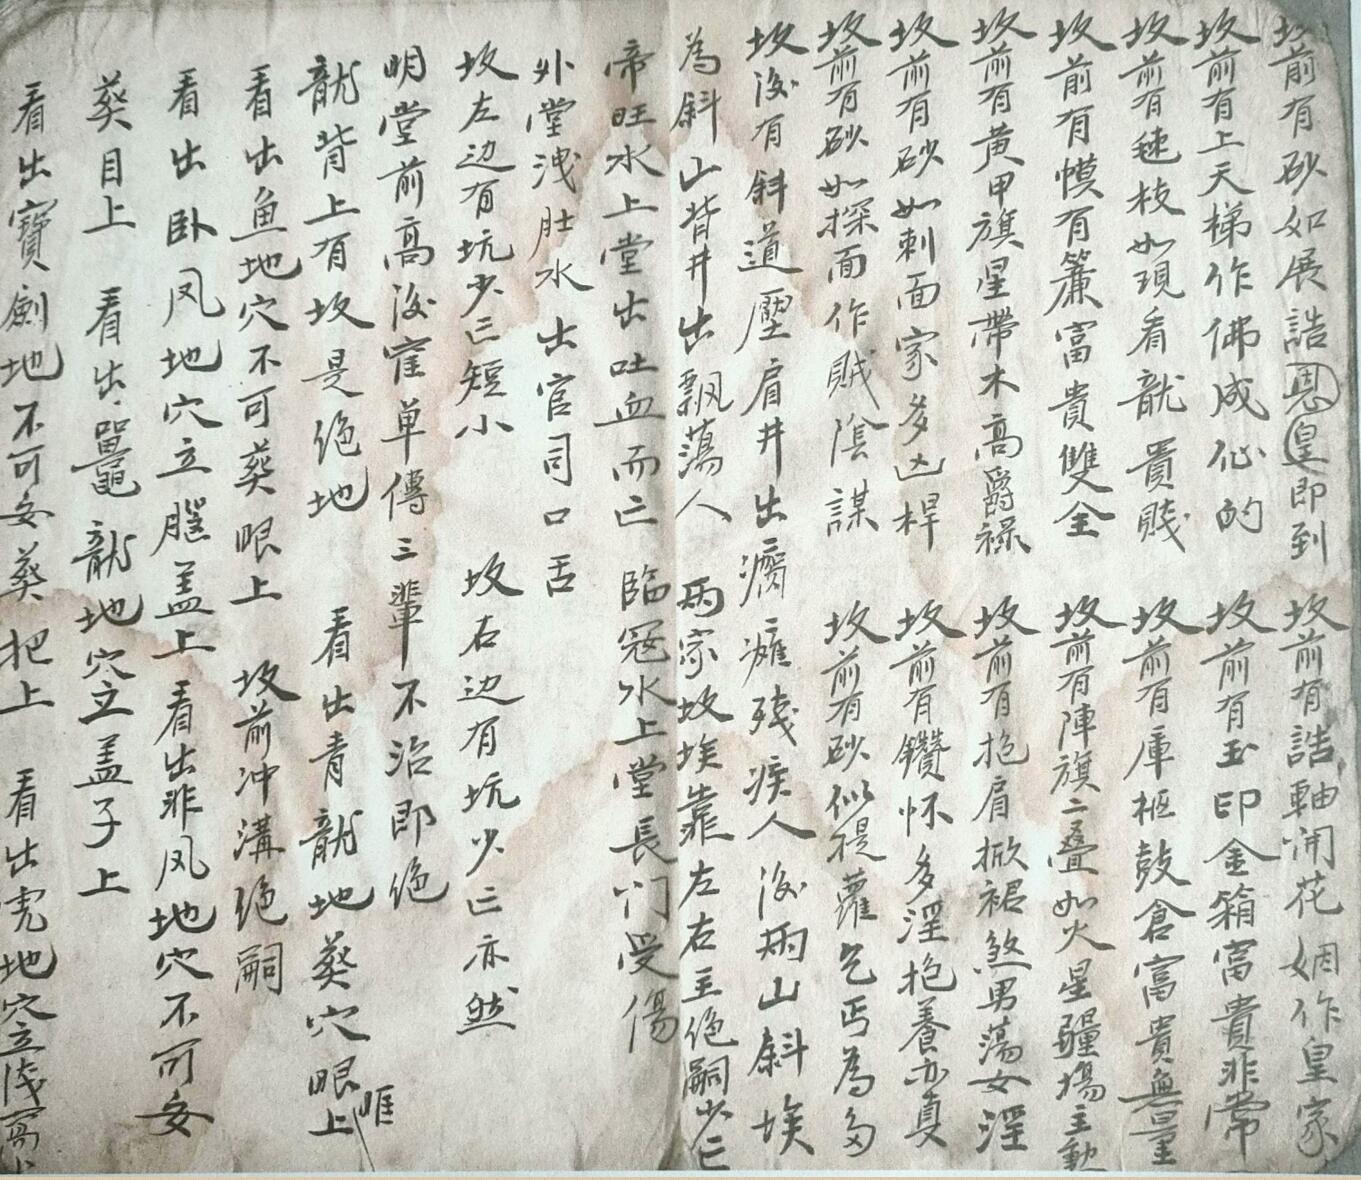 坟前有砂如展誥恩皇即到 坟前有誥軸開花姻作皇家
坟前有上天梯作佛成仙的 坟前有玉印金箱富貴非常
坟前有秧枝如現看龍貴賤 坟前有庫柩鼓倉富貴無量
坟前有幙有簾富貴雙全 坟前有陣旗二叠如火星疆場主動
坟前有黄甲旗星帶木高爵禄 坟前有抱肩掀裙煞男蕩女淫
坟前有砂如刺面家多凶桿 坟前有鑽怀多淫抱養亦真
坟前有砂如探面作贼陰謀 坟前有砂似提蘿乞丐為多
坟後有斜道壓肩井出癘癱殘疾人後两山斜埃
為斜山背井出飘蕩人 两家坟埃靠左右主绝嗣少亡
帝旺水上堂出吐血而亡 臨冠水上堂長门受傷
外堂洩肚水出官司口舌
坟左边有坑少亡短小 坟右边有坑少亡亦然
明堂前高後窪单傳三輩不治即绝
龍背上有坟是绝地 看出青龍地葵穴眼上
看出鱼地穴不可葵眼上 坟前冲溝绝嗣
看出卧凤地穴立腥盖上 看出非凤地穴不可妄
葵目上 看出鼍龍地穴立盖子上
看出寶劍地不可妄葵把上 看出虎地穴立